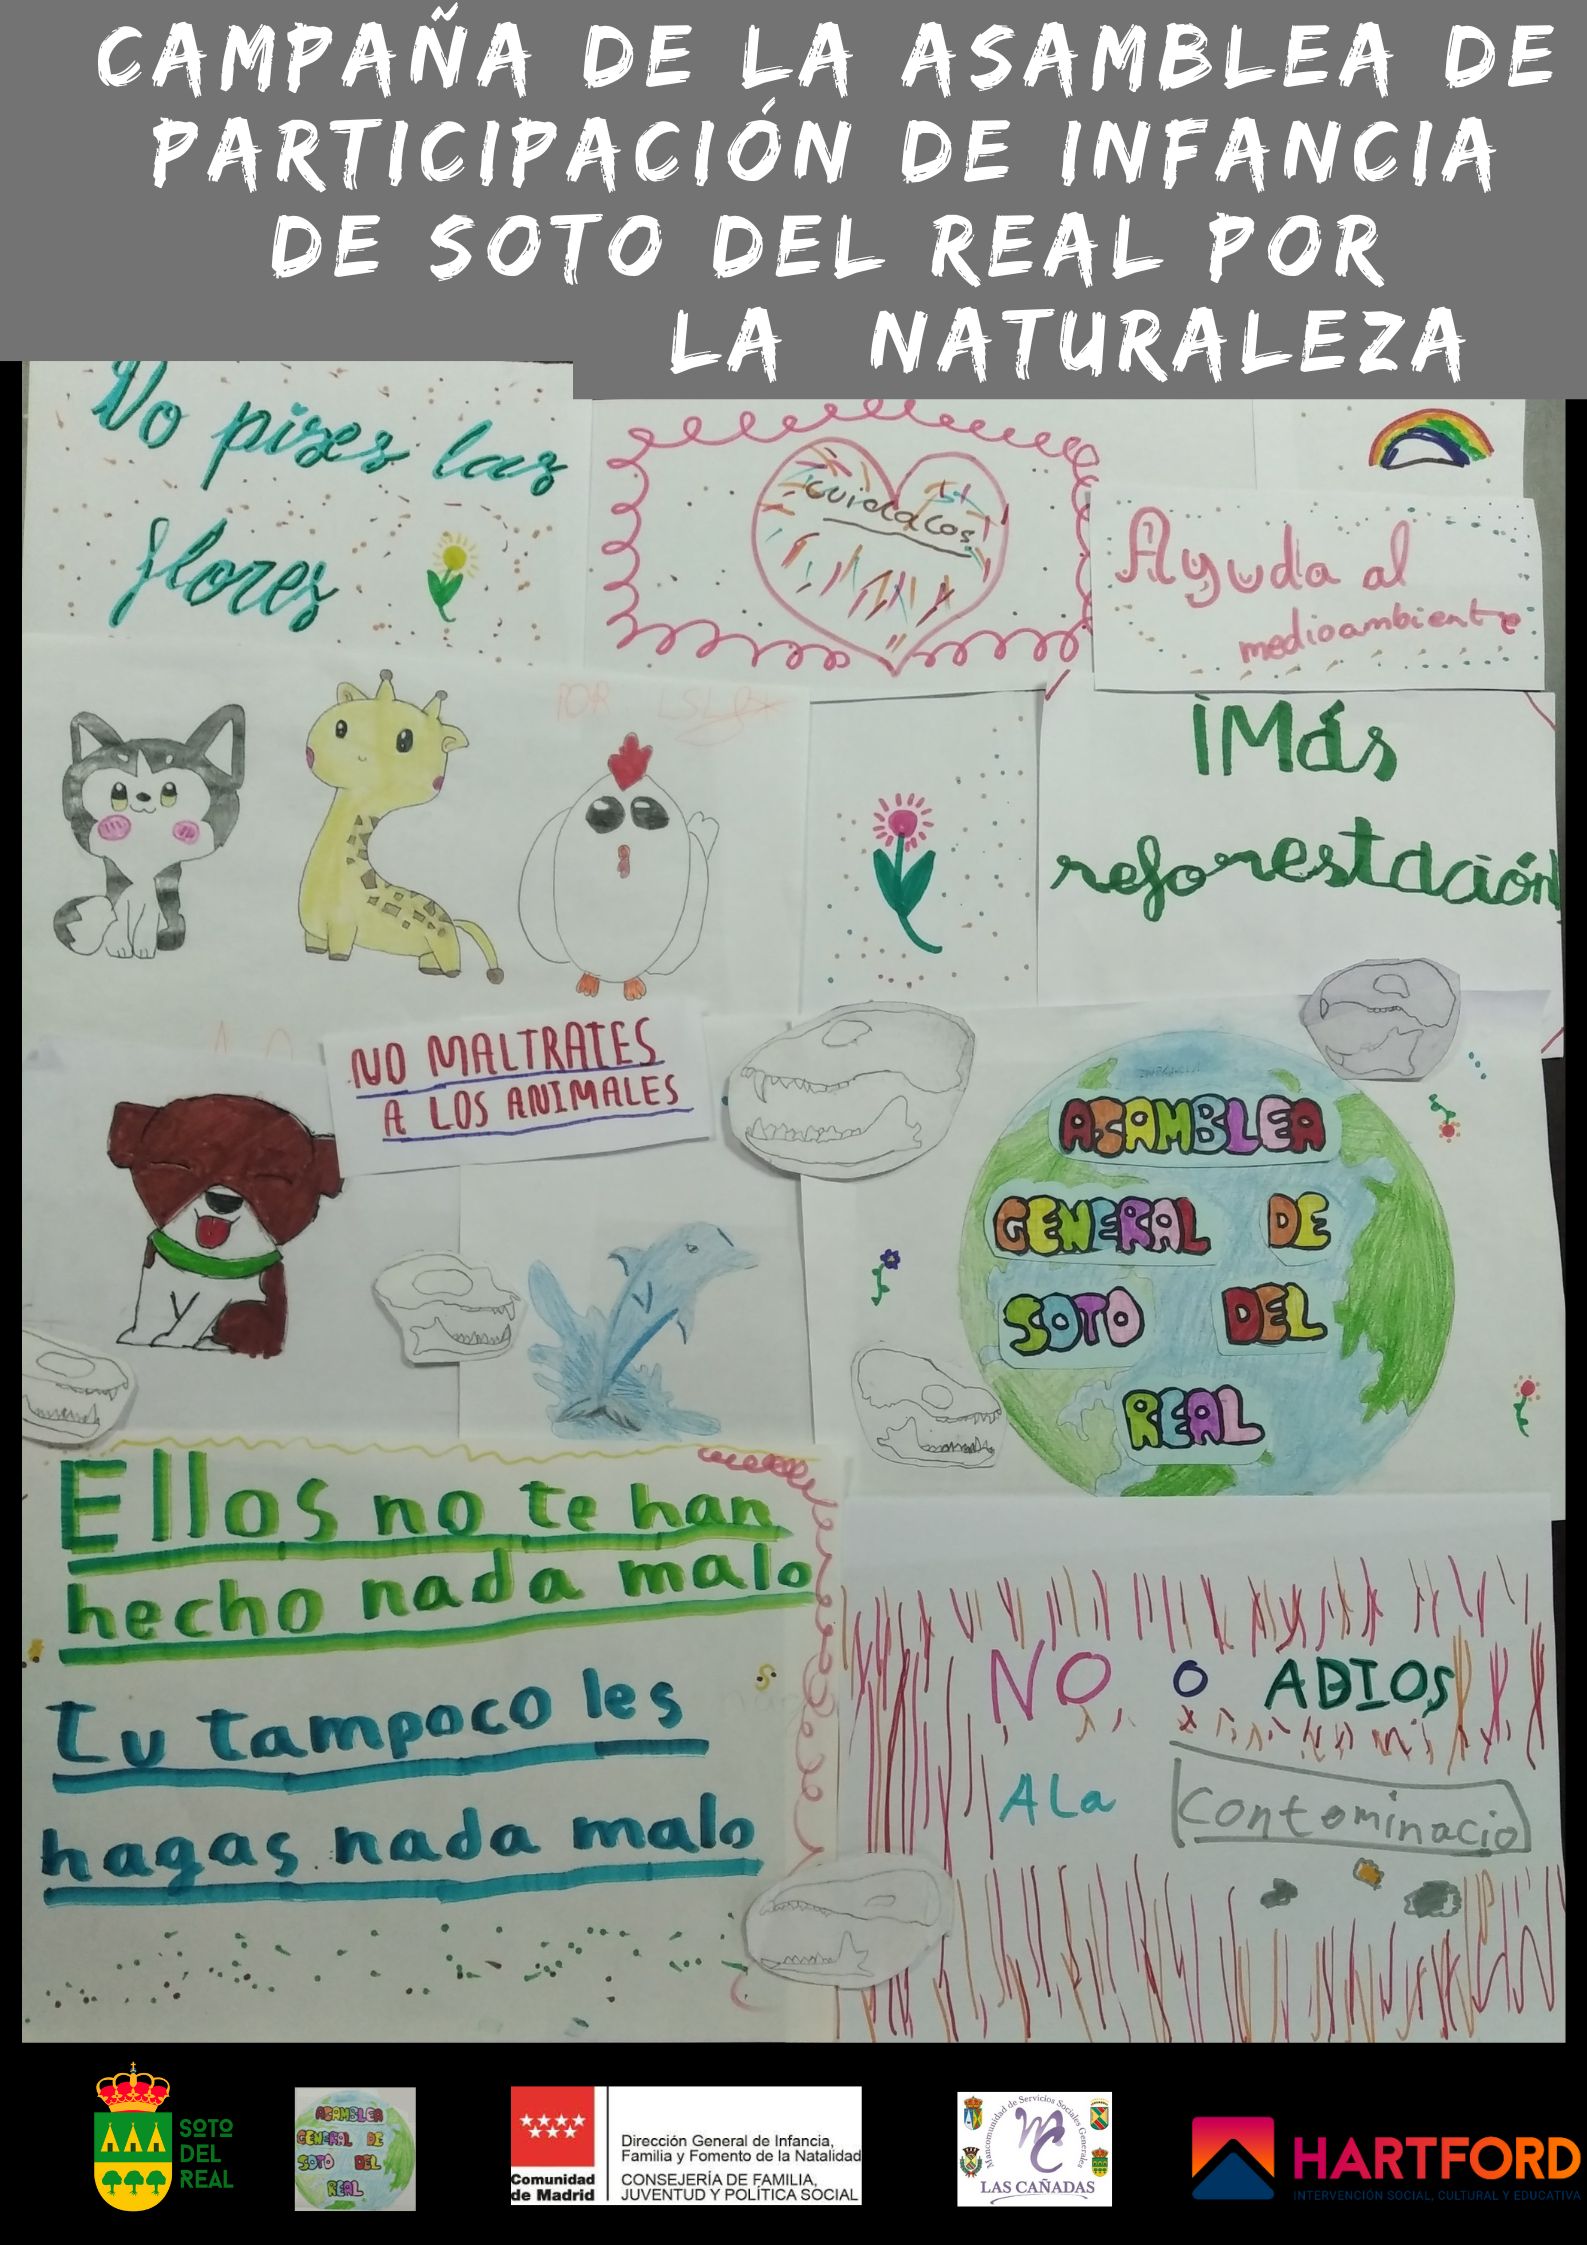 CAMPAÑA DE LA ASAMBLEA DE
PARTICIPACIÓN DE INFANCIA
DE SOTO DEL REAL POR
LA NATURALEZA
No pises las
flores
cuidalos
Ayuda al
medioambiente
POR LSL
¡Más
reforestación
NO MALTRATES
A LOS ANIMALES
ASAMBLEA
GENERAL DE
SOTO DEL
REAL
Ellos no te han
hecho nada malo
tu tampoco les
hagas nada malo
NO O ADIOS
A La
contominacio
SOTO
DEL
REAL
ASAMBLEA
GENERAL DE
SOTO DEL
REAL
Comunidad
de Madrid
Dirección General de Infancia,
Familia y Fomento de la Natalidad
CONSEJERÍA DE FAMILIA,
JUVENTUD Y POLÍTICA SOCIAL
Mancomunidad de Servicios Sociales Generales
LAS CAÑADAS
HARTFORD
INTERVENCIÓN SOCIAL, CULTURAL Y EDUCATIVA